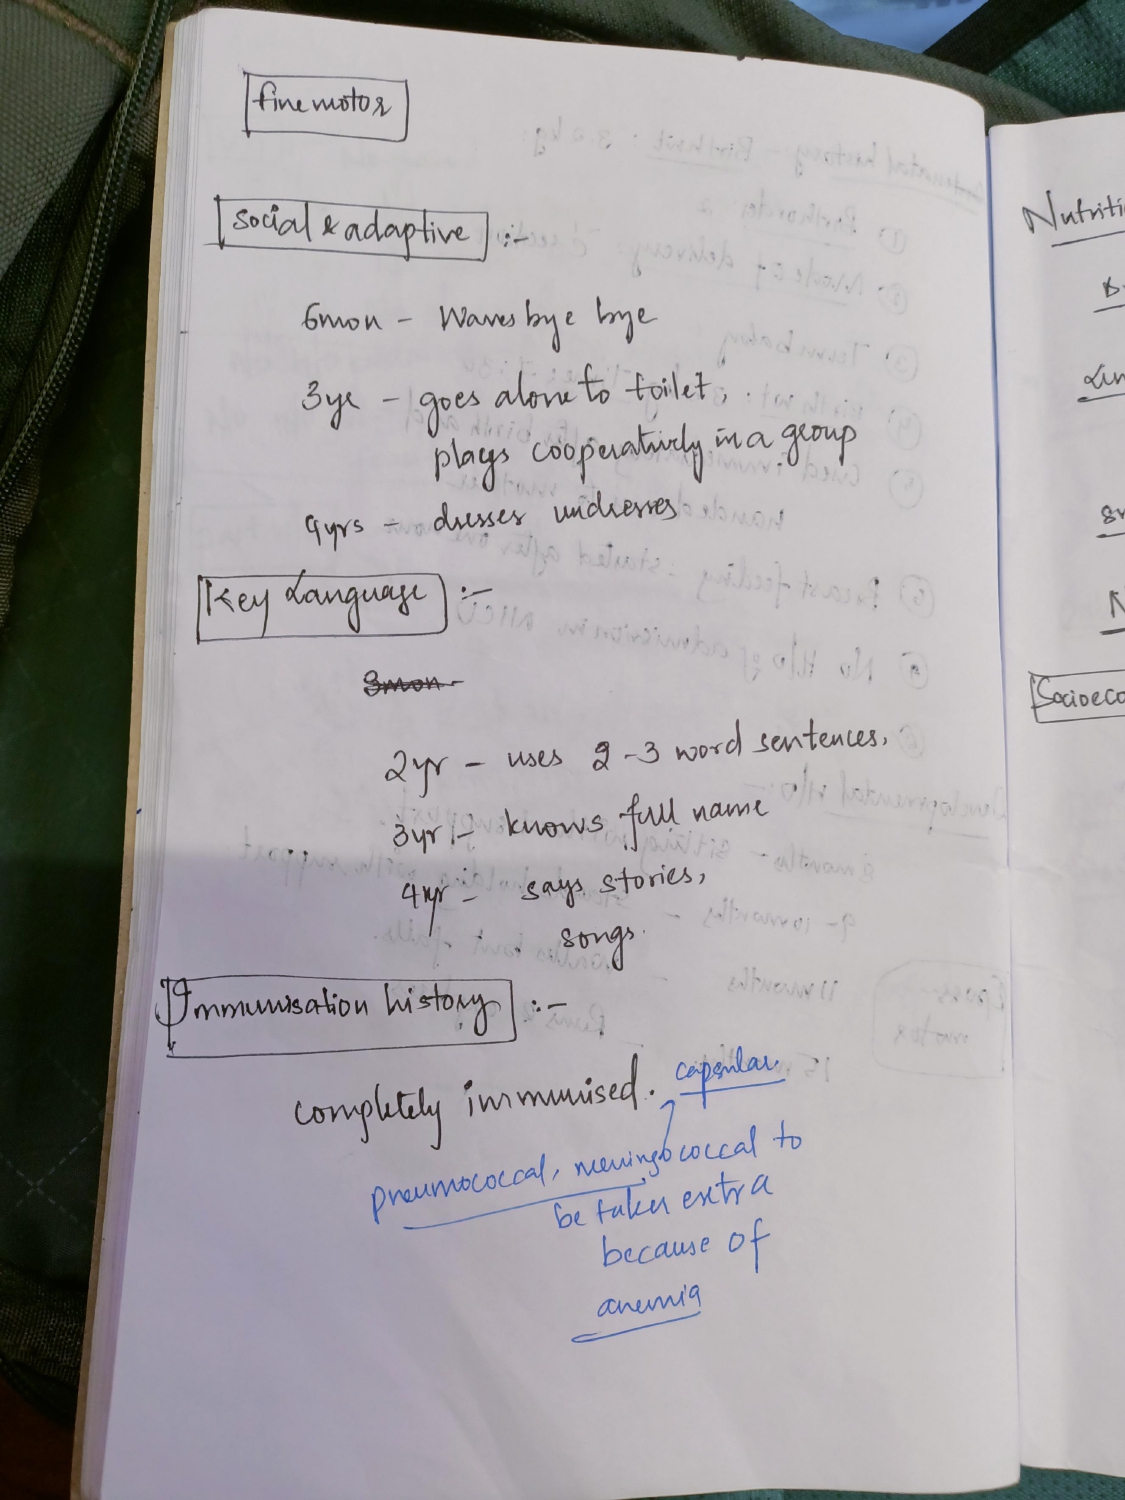 fine motor
Social & adaptive :-
6mon - Waves bye bye
3yr - goes alone to toilet,
plays cooperatively in a group
4yrs - dresses undresses
Key Language :-
3mon -
2yr - uses 2-3 word sentences,
3yr :- knows full name
4yr :- says stories,
songs.
Immunisation history :-
completely immunised.
capsular
pneumococcal, meningococcal to
be taken extra
because of
anemia
Nutriti
Socioeco